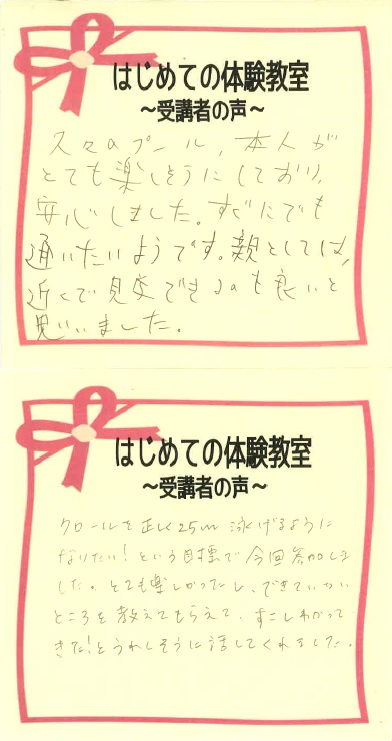 はじめての体験教室
～受講者の声～
久々のプール、本人が
とても楽しそうにしており、
安心しました。すぐにでも
通いたいようです。親としては、
近くで見学できるのも良いと
思いました。
はじめての体験教室
～受講者の声～
クロールを正しく25m泳げるように
なりたい！という目標で今回参加しま
した。とても楽しかったし、できていない
ところを教えてもらえて、すこしわかって
きた！とうれしそうに話してくれました。